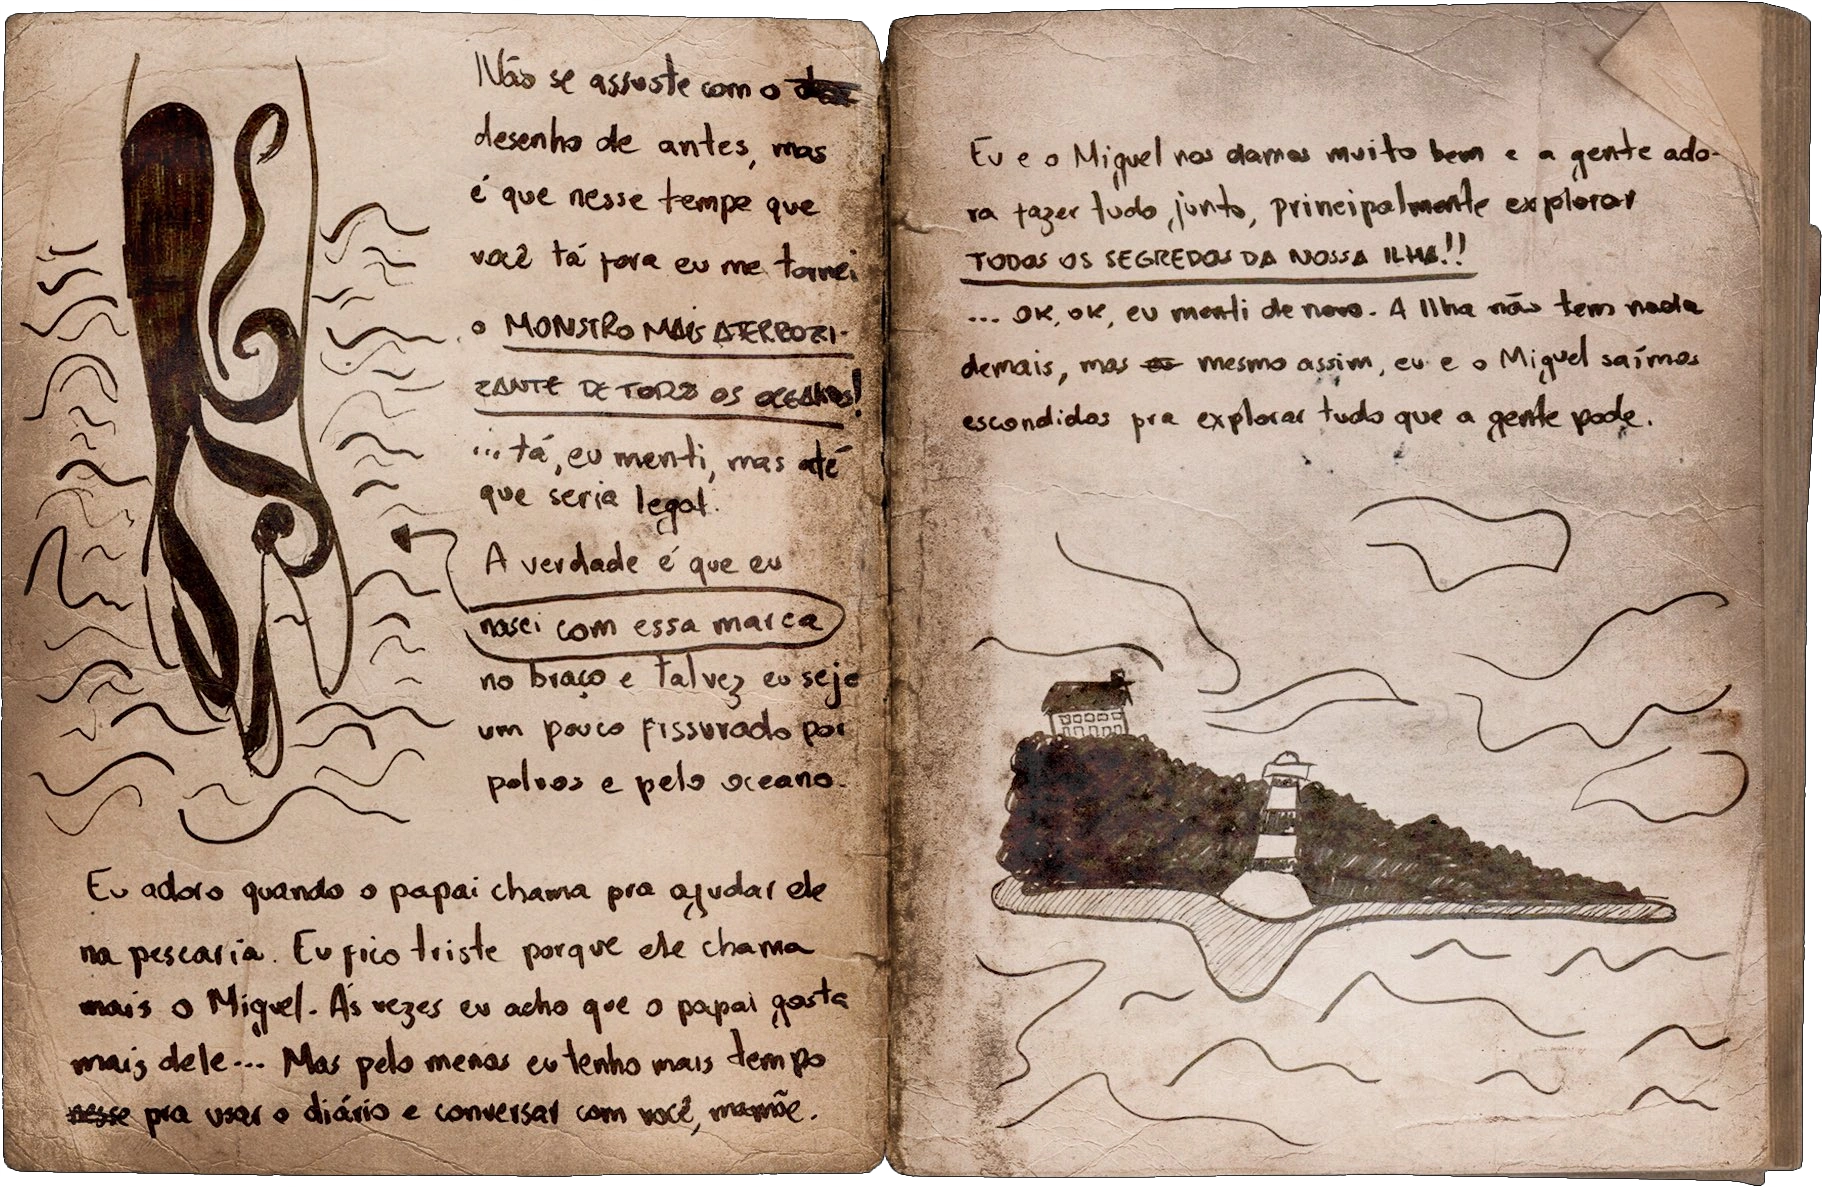 Não se assuste com o
desenho de antes, mas
é que nesse tempo que
você tá fora eu me tornei
o MONSTRO MAIS ATERRORI-
ZANTE DE TODOS OS OCEANOS!
...tá, eu menti, mas até
que seria legal.
A verdade é que eu
nasci com essa marca
no braço e talvez eu seja
um pouco fissurado por
polvos e pelo oceano.
Eu adoro quando o papai chama pra ajudar ele
na pescaria. Eu fico triste porque ele chama
mais o Miguel. Às vezes eu acho que o papai gosta
mais dele... Mas pelo menos eu tenho mais tempo
nesse pra usar o diário e conversar com você, mamãe.
Eu e o Miguel nos damos muito bem e a gente ado-
ra fazer tudo junto, principalmente explorar
TODOS OS SEGREDOS DA NOSSA ILHA!!
... OK, OK, eu menti de novo. A Ilha não tem nada
demais, mas mesmo assim, eu e o Miguel saímos
escondidos pra explorar tudo que a gente pode.